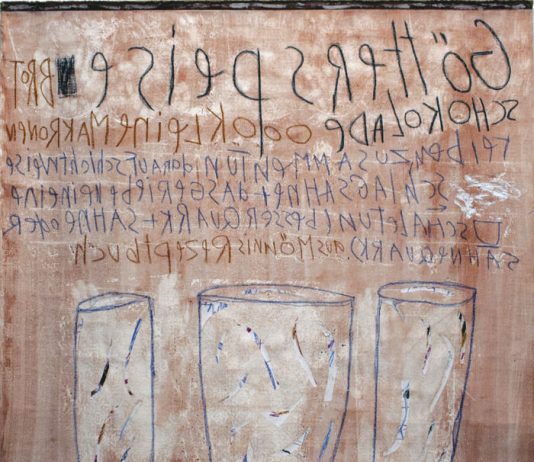 Götterspeise BROT
SCHOKOLADE odo kleine MAKRONEN
reiben ZUSAMMEN TUN darauf schichtweise
SCHLAGSAHNE + das geriebene in eine
SCHALE TUN (besser QUARK + SAHNE oder
SAHNEQUARK). aus MÖNNIS Rezeptbuch